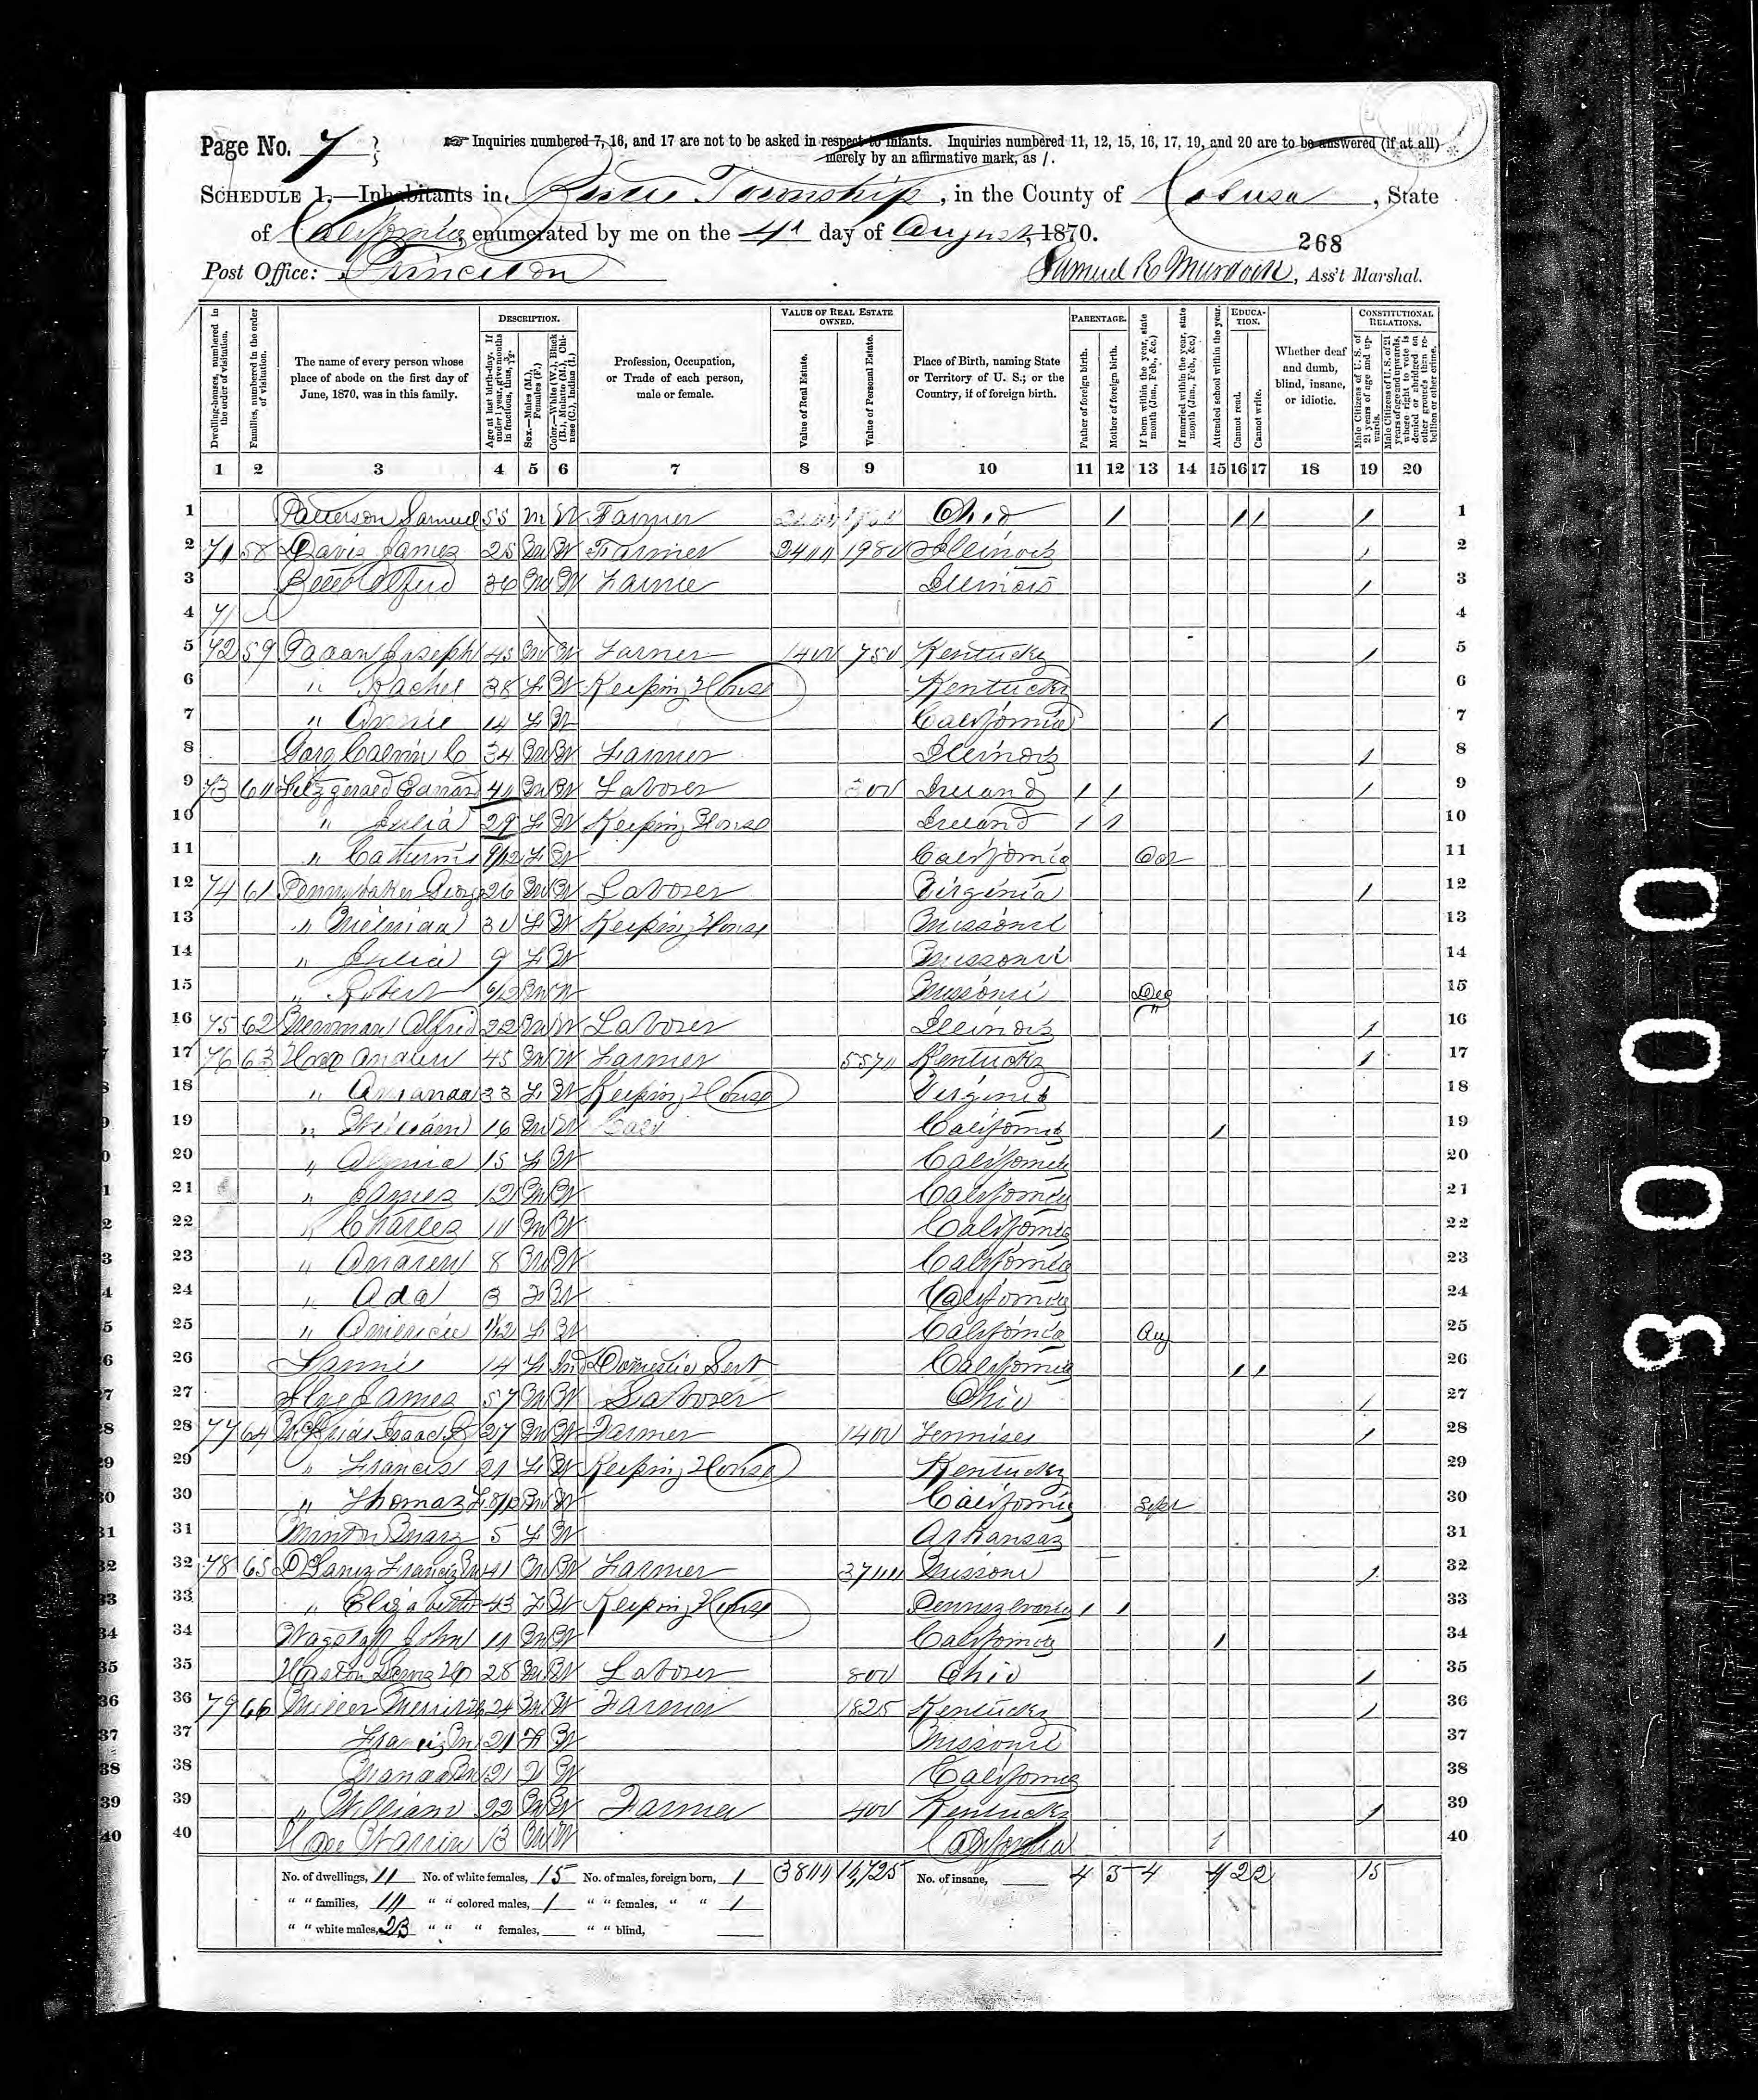 Page No. 7
Inquiries numbered 7, 16, and 17 are not to be asked in respect to infants. Inquiries numbered 11, 12, 15, 16, 17, 19, and 20 are to be answered (if at all)
merely by an affirmative mark, as /.
SCHEDULE 1.—Inhabitants in Township, in the County of Colusa, State
of California, enumerated by me on the 4 day of August, 1870.
268
Post Office: Princeton Samuel R Murdock, Ass't Marshal.
Dwelling-houses, numbered in the order of visitation.
Families, numbered in the order of visitation.
The name of every person whose place of abode on the first day of June, 1870, was in this family.
DESCRIPTION.
Age at last birth-day. If under 1 year, give months in fractions, thus, 3/12.
Sex.—Males (M.), Females (F.)
Color.—White (W.), Black (B.), Mulatto (M.), Chinese (C.), Indian (I.)
Profession, Occupation, or Trade of each person, male or female.
VALUE OF REAL ESTATE OWNED.
Value of Real Estate.
Value of Personal Estate.
Place of Birth, naming State or Territory of U. S.; or the Country, if of foreign birth.
PARENTAGE.
Father of foreign birth.
Mother of foreign birth.
If born within the year, state month (Jan., Feb., &c.)
If married within the year, state month (Jan., Feb., &c.)
Attended school within the year.
EDUCATION.
Cannot read.
Cannot write.
Whether deaf and dumb, blind, insane, or idiotic.
CONSTITUTIONAL RELATIONS.
Male Citizens of U. S. of 21 years of age and upwards.
Male Citizens of U. S. of 21 years of age and upwards, where right to vote is denied or abridged on other grounds than rebellion or other crime.
1 2 3 4 5 6 7 8 9 10 11 12 13 14 15 16 17 18 19 20
1 Patterson Samuel 55 M W Farmer Ohio / / / / 1
2 71 58 Davis James 25 M W Farmer 2400 1980 Illinois / 2
3 36 M W Farmer Illinois / 3
4 71 4
5 72 59 Joseph 45 M W Farmer 1400 750 Kentucky / 5
6 " Rachel 38 F W Keeping House Kentucky 6
7 " Annie 14 F W California / 7
8 Calvin C 34 M W Farmer Illinois / 8
9 73 60 Fitzgerald Edward 40 M W Laborer 300 Ireland / / / 9
10 " Julia 29 F W Keeping House Ireland / / 10
11 " Catherine 9/12 F W California Oct 11
12 74 61 Pennybaker George 26 M W Laborer Virginia / 12
13 " 30 F W Keeping House Missouri 13
14 " Julia 9 F W Missouri 14
15 " Robert 6/12 M W Missouri Dec 15
16 75 62 Newman Alfred 22 M W Laborer Illinois / 16
17 76 63 Andrew 45 M W Farmer 5570 Kentucky / 17
18 " Amanda 33 F W Keeping House Virginia 18
19 " William 16 M W California / 19
20 " 15 F W California 20
21 " James 12 M W California 21
22 " Charles 10 M W California 22
23 " Andrew 8 M W California 23
24 " Ada 3 F W California 24
25 " America 11/12 F W California Aug 25
26 Fannie 14 F Ind Domestic Sert California / / 26
27 James 57 M W Laborer Ohio / 27
28 77 64 Isaac 27 M W Farmer 1400 Tennisee / 28
29 " Francis 21 F W Keeping House Kentucky 29
30 " Thomas 8/12 M W California Sept 30
31 Minton Mary 5 F W Arkansas 31
32 78 65 Francis M 41 M W Farmer 3700 Missouri / 32
33 " Elizabeth 43 F W Keeping House Pennsylvania / / 33
34 Wagstaff John 11 M W California / 34
35 28 M W Laborer 800 Ohio / 35
36 79 66 Miller 24 M W Farmer 1825 Kentucky / 36
37 Francis M 21 F W Missouri 37
38 W California 38
39 " William 22 M W Farmer 400 Kentucky / 39
40 Warren 13 M W California / 40
No. of dwellings, 11 No. of white females, 15 No. of males, foreign born, 1 3800 16,725 No. of insane, 4 5 4 4 2 2 15
" " families, 10 " " colored males, 1 " " females, " " 1
" " white males, 23 " " " females, " " blind,
80000